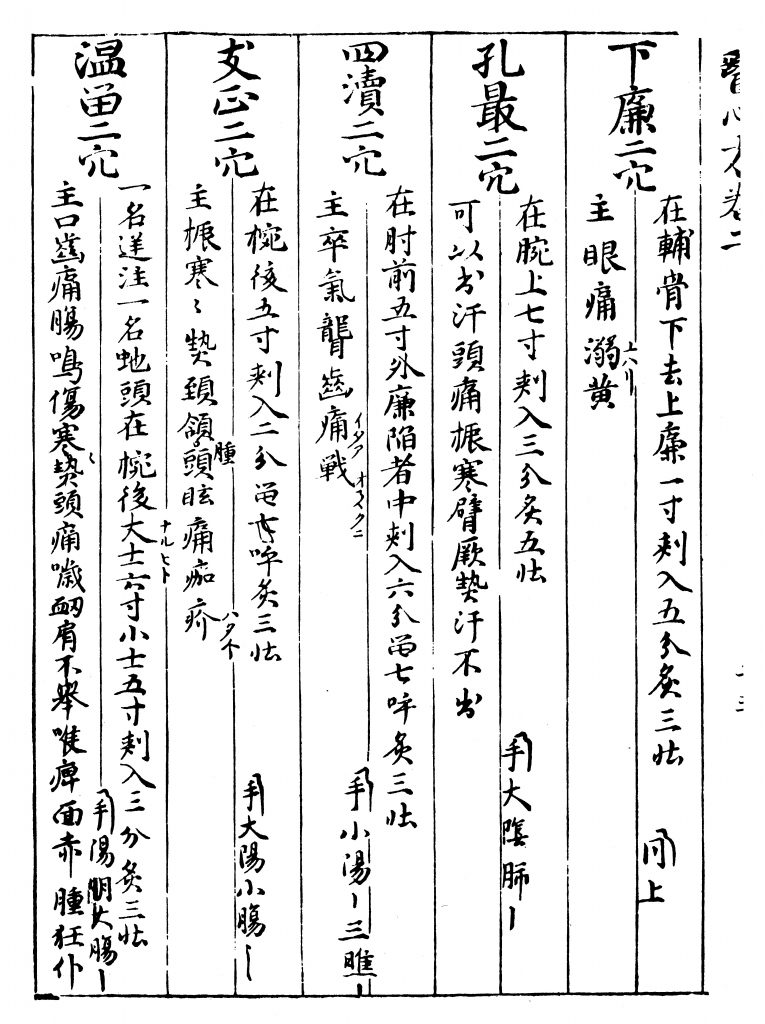 醫心方卷二
下廉二穴
在輔骨下去上廉一寸刺入五分灸三壮
同上
主眼痛溺黄
孔最二穴
在腕上七寸刺入三分灸五壮
手大陰肺
可以出汗頭痛振寒臂厥熱汗不出
四瀆二穴
在肘前五寸外廉陷者中刺入六分留七呼灸三壮
手小陽三瞧
主卒氣聾齒痛戦
支正二穴
在椀後五寸刺入二分留七呼灸三壮
手大陽小腸
主振寒〻熱頚頷腫頭眩痛痂疥
温留二穴
一名逆注一名虵頭在椀後大士六寸小士五寸刺入三分灸三壮
手陽明大腸
主口齒痛腸鳴傷寒〻熱頭痛噦衂肩不舉喉痺面赤腫狂仆